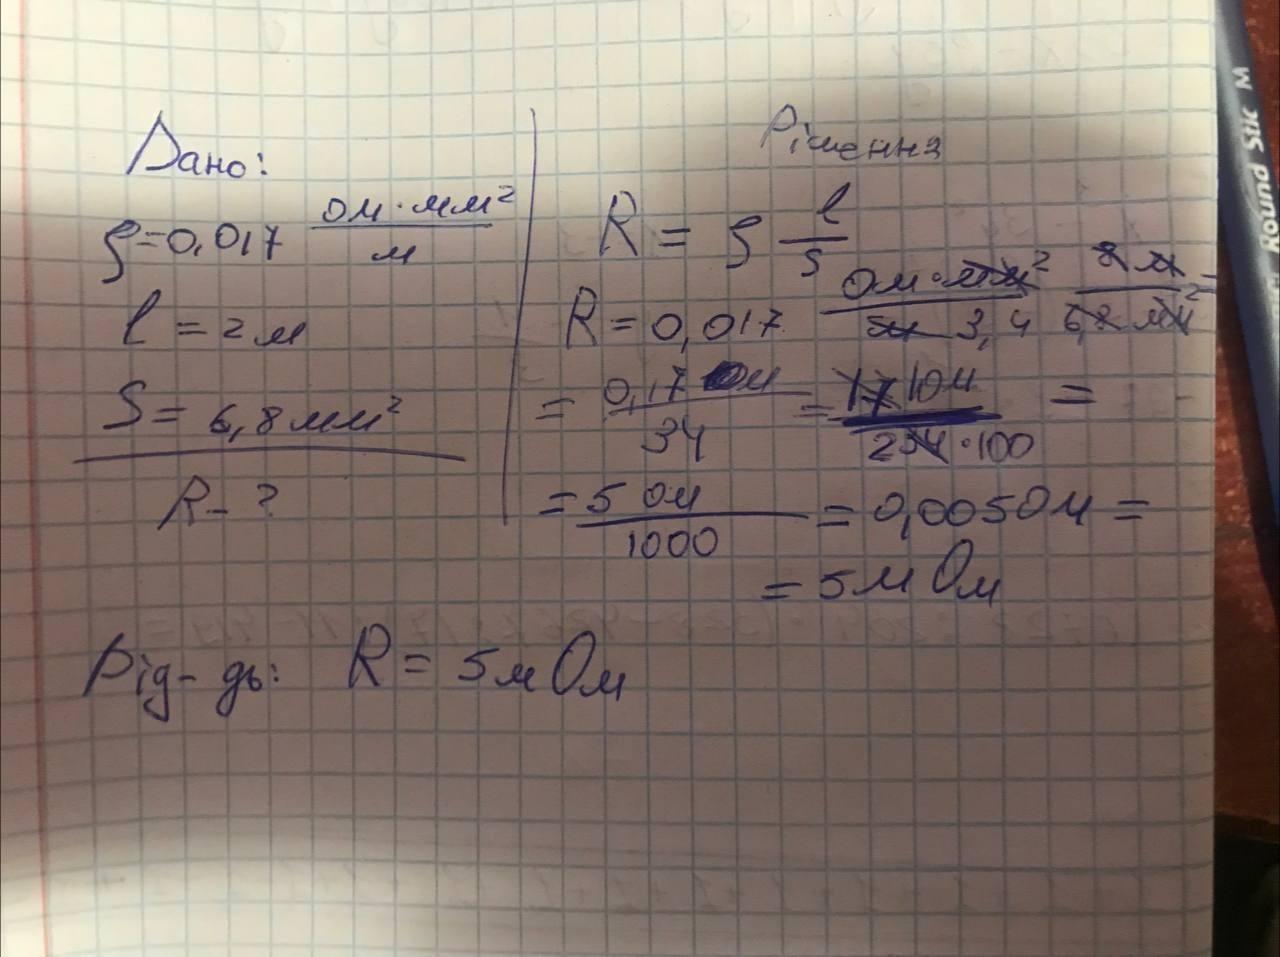 Дано:
ρ=0,017 ом·мм²/м
l = 2м
S = 6,8 мм²
R - ?
Рішення
R = ρ l/s
R = 0,017 Ом·мм²/м 3,4 2 м/6,8 мм² =
= 0,17 Ом/34 = 17 1 Ом/2 34·100 =
= 5 Ом/1000 = 0,005 Ом =
= 5 м Ом
Від-дь: R = 5 м Ом
Round Stic M